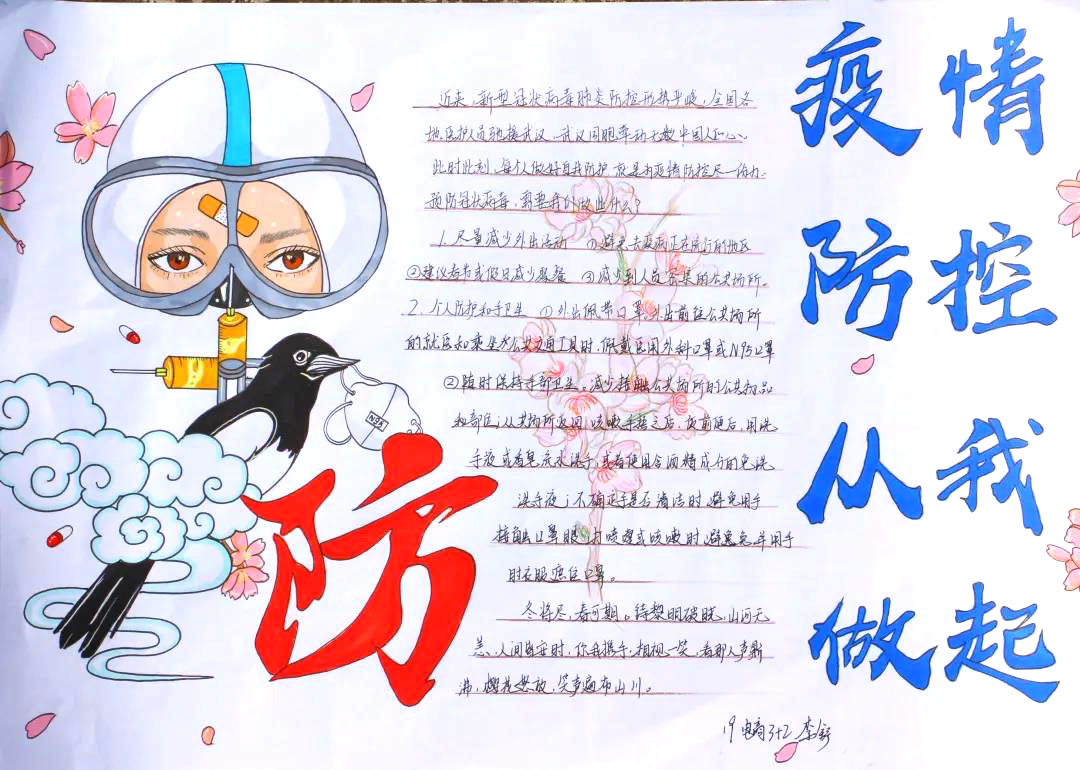 疫情
防控
从我
做起
近来,新型冠状病毒肺炎防控形势严峻,全国各
地医护人员驰援武汉,武汉同胞牵动无数中国人的心。
此时此刻,每个人做好自我防护 就是为疫情防控尽一份力.
预防冠状病毒,需要我们做些什么?
1.尽量减少外出活动 ①避免去疫病正在流行的地区
②建议春节或假日减少聚餐 ③减少到人员密集的公共场所。
2.个人防护和手卫生 ①外出佩带口罩。外出前往公共场所
的就医和乘坐公共交通工具时,佩戴医用外科口罩或N95口罩
②随时保持手部卫生。减少接触公共场所的公共物品
和部位;从公共场所返回,咳嗽手捂之后,饭前便后,用洗
手液或者皂流水洗手,或者使用含酒精成分的免洗
洗手液;不确定手是否清洁时,避免用手
接触口罩眼,打喷嚏或咳嗽时 用手
时衣服遮住口罩。
冬将尽,春可期。待黎明破晓,山河无
恙,人间皆安时,你我携手,相视一笑,看那人声鼎
沸,樱花怒放,笑声遍布山川。
19电商3+2
N95
防